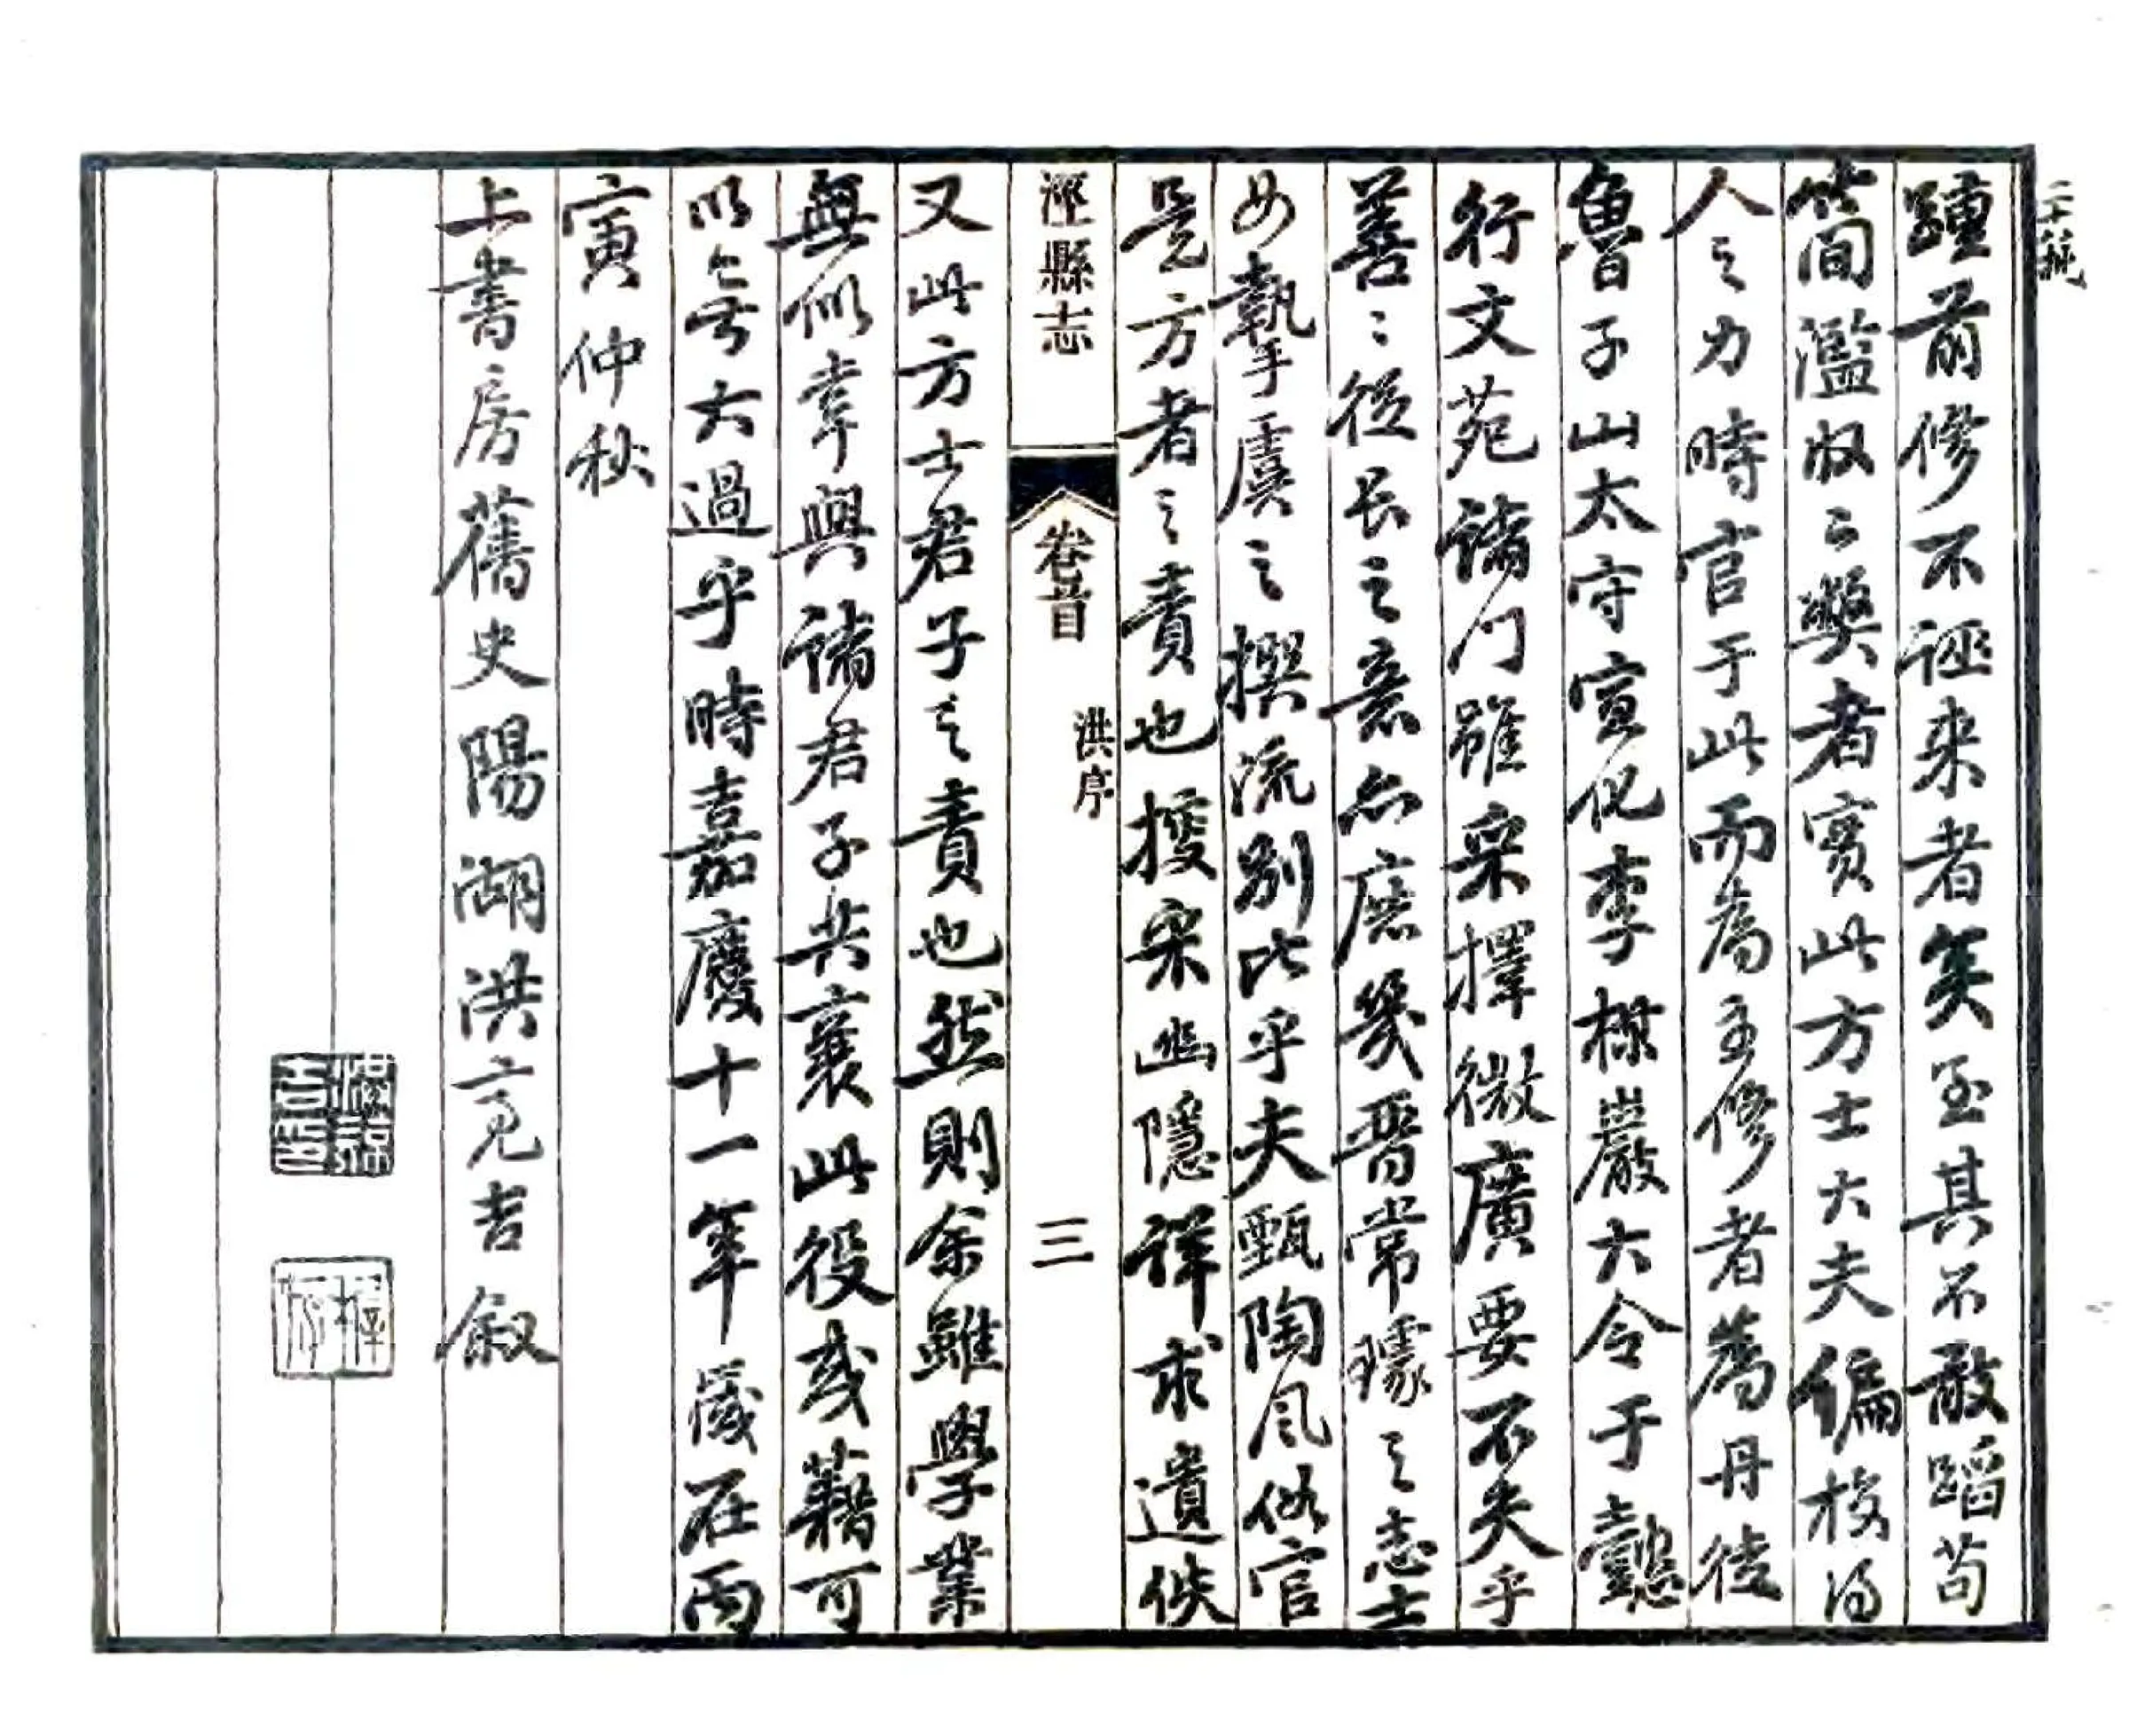 踵前修不誣来者矣至其不敢蹈苟
簡濫收之獘者實此方士大夫編校得
人之力時官于此而為主修者為丹徒
魯子山太守宣化李橒巖大令于懿
行文苑諸门雖采擇微廣要不失乎
善善從長之意亦庶幾晋常璩之志士
女摯虞之撰流别比乎夫甄陶風俗官
是方者之責也搜采幽隱詳求遺佚
涇縣志 卷首 洪序 三
又此方士君子之責也然則余雖學業
無似幸與諸君子共襄此役或藉可
以告無大過乎時嘉慶十一年歲在丙
寅仲秋
上書房舊史陽湖洪亮吉叙
洪亮吉印
稚存